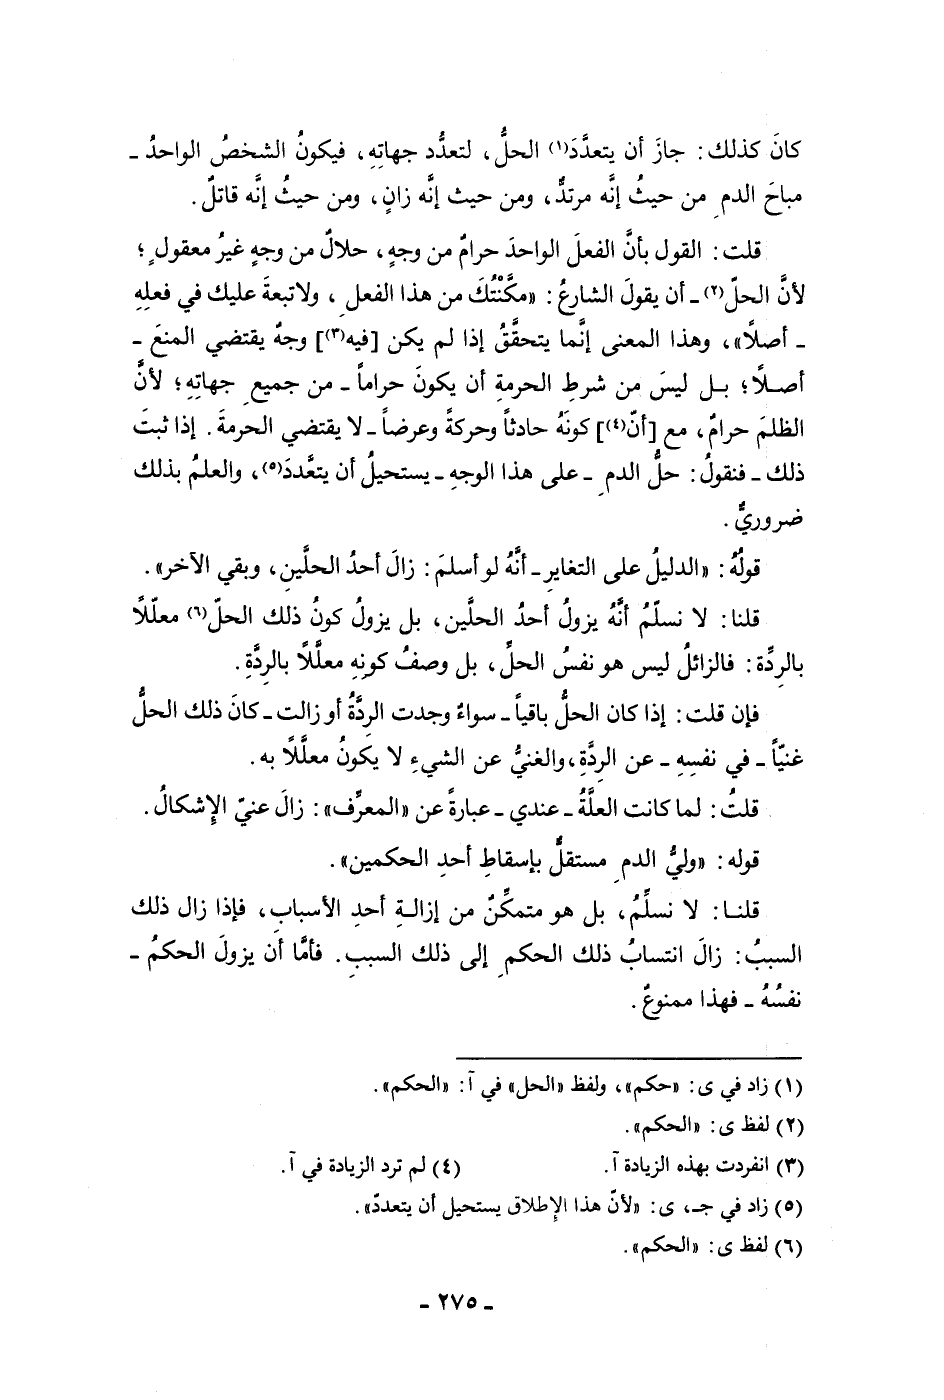 كانَ كذلك: جازَ أن يتعدَّدَ(١) الحلُّ، لتعدُّد جهاتِهِ، فيكونُ الشخصُ الواحدُ ـ
مباحَ الدمِ من حيثُ إنَّه مرتدٌّ، ومن حيث إنَّه زانٍ، ومن حيثُ إنَّه قاتلٌ.
قلت: القول بأنَّ الفعلَ الواحدَ حرامٌ من وجهٍ، حلالٌ من وجهٍ غيرُ معقولٍ؛
لأنَّ الحلّ(٢) ـ أن يقولَ الشارعُ: «مكَّنْتُكَ من هذا الفعلِ، ولاتبعةَ عليك في فعلِهِ
ـ أصلًا»، وهذا المعنى إنَّما يتحقَّقُ إذا لم يكن [فيه(٣)] وجهٌ يقتضي المنعَ ـ
أصلًا؛ بل ليسَ من شرطِ الحرمةِ أن يكونَ حراماً ـ من جميعِ جهاتِهِ؛ لأنَّ
الظلمَ حرامٌ، مع [أنّ(٤)] كونَهُ حادثاً وحركةً وعرضاً ـ لا يقتضي الحرمةَ. إذا ثبتَ
ذلك ـ فنقولُ: حلُّ الدمِ ـ على هذا الوجهِ ـ يستحيلُ أن يتعَّددَ(٥)، والعلمُ بذلك
ضروريٌّ.
قولُهُ: «الدليلُ على التغايرِ ـ أنَّهُ لو أسلمَ: زالَ أحدُ الحلَّينِ، وبقي الآخر».
قلنا: لا نسلّمُ أنَّهُ يزولُ أحدُ الحلَّين، بل يزولُ كونُ ذلك الحلّ(٦) معلّلًا
بالردَّةِ: فالزائلُ ليس هو نفسُ الحلِّ، بل وصفُ كونِهِ معلَّلًا بالردَّةِ.
فإن قلت: إذا كان الحلُّ باقياً ـ سواءٌ وجدت الردَّةُ أو زالت ـ كانَ ذلك الحلُّ
غنيّاً ـ في نفسِهِ ـ عن الردَّةِ، والغنيُّ عن الشيءِ لا يكونُ معلَّلًا به.
قلتُ: لما كانت العلَّةُ ـ عندي ـ عبارةً عن «المعرِّف»: زالَ عنيّ الإِشكالُ.
قوله: «وليُّ الدمِ مستقلٌّ بإسقاطِ أحدِ الحكمين».
قلنا: لا نسلِّمُ، بل هو متمكِّنٌ من إزالةِ أحدِ الأسبابِ، فإذا زال ذلك
السببُ: زالَ انتسابُ ذلك الحكمِ إلى ذلك السببِ. فأمَّا أن يزولَ الحكمُ ـ
نفسُهُ ـ فهذا ممنوعٌ.
(١) زاد في ى: «حكم»، ولفظ «الحل» في آ: «الحكم».
(٢) لفظ ى: «الحكم».
(٣) انفردت بهذه الزيادة آ. (٤) لم ترد الزيادة في آ.
(٥) زاد في جـ، ى: «لأنّ هذا الإِطلاق يستحيل أن يتعدد».
(٦) لفظ ى: «الحكم».
ـ ٢٧٥ ـ